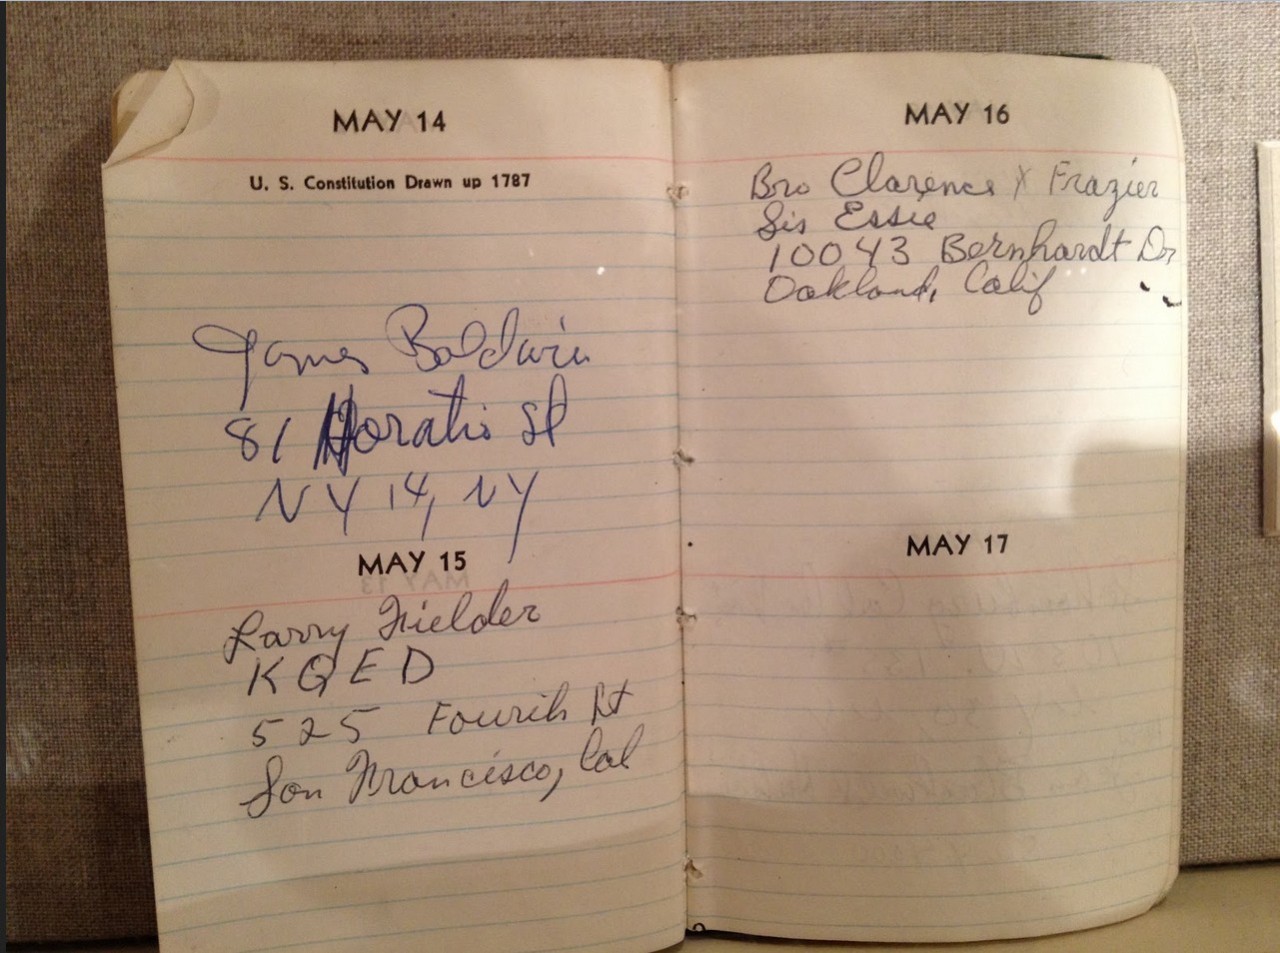 MAY 14
U. S. Constitution Drawn up 1787
James Baldwin
81 Horatio St
NY 14, NY
MAY 15
Larry Fielder
KQED
525 Fourth St
San Francisco, Cal
MAY 16
Bro Clarence X Frazier
Sis Essie
10043 Bernhardt Dr
Oakland, Calif
MAY 17